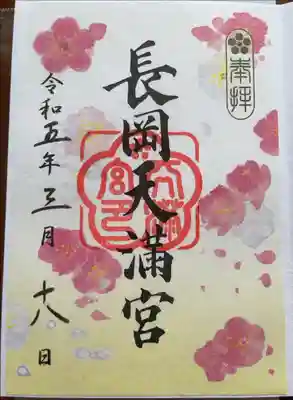 奉拝
長岡天満宮
令和五年三月十八日